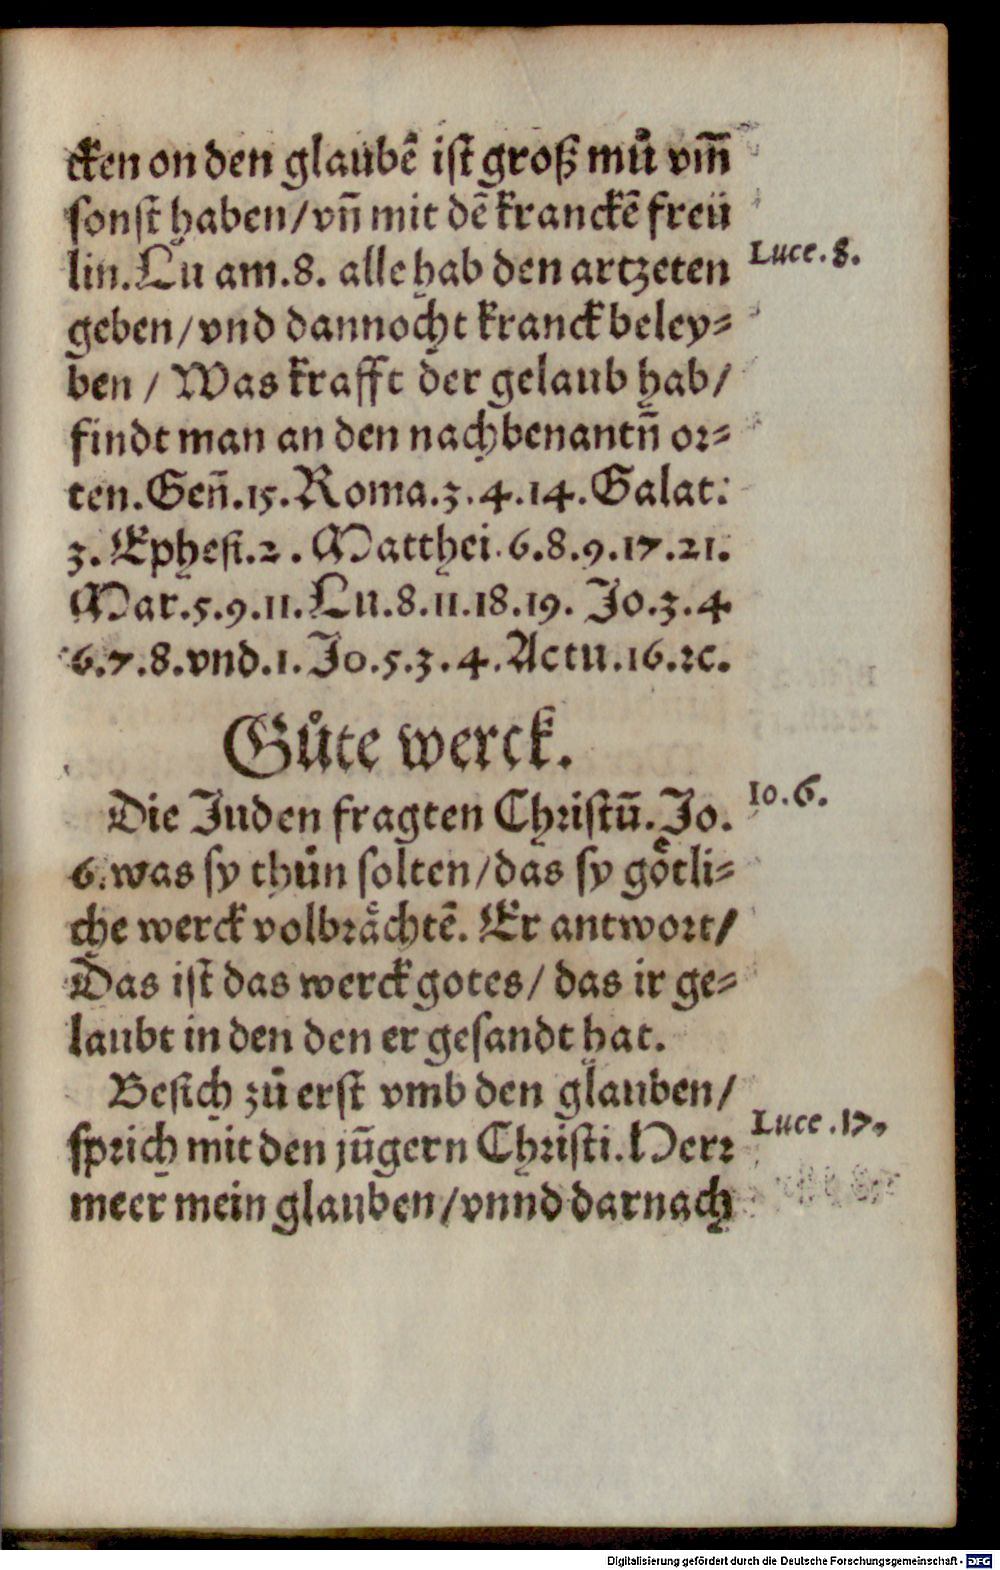 cken on den glaubē ist groß mů vm̄
sonst haben/vn̄ mit dē kranckē freü
lin. Lu am.8. alle hab den artzeten
Luce.8.
geben/vnd dannocht kranck beley-
ben / Was krafft der gelaub hab/
findt man an den nachbenantn̄ or-
ten.Gen̄.15.Roma.3.4.14.Galat.
3.Ephesi.2.Matthei.6.8.9.17.21.
Mar.5.9.11.Lu.8.11.18.19. Jo.3.4
6.7.8.vnd.1.Jo.5.3.4.Actu.16.ꝛc.
Gůte werck.
Die Juden fragten Christū.Jo.
Io.6.
6.was sy thůn solten/das sy goͤtli-
che werck volbraͤchtē. Er antwort/
Das ist das werck gotes/ das ir ge-
laubt in den den er gesandt hat.
Besich zů erst vmb den glauben/
Luce.17.
sprich mit den jūgern Christi.Herr
meer mein glauben/vnnd darnach
Digitalisierung gefördert durch die Deutsche Forschungsgemeinschaft - DFG